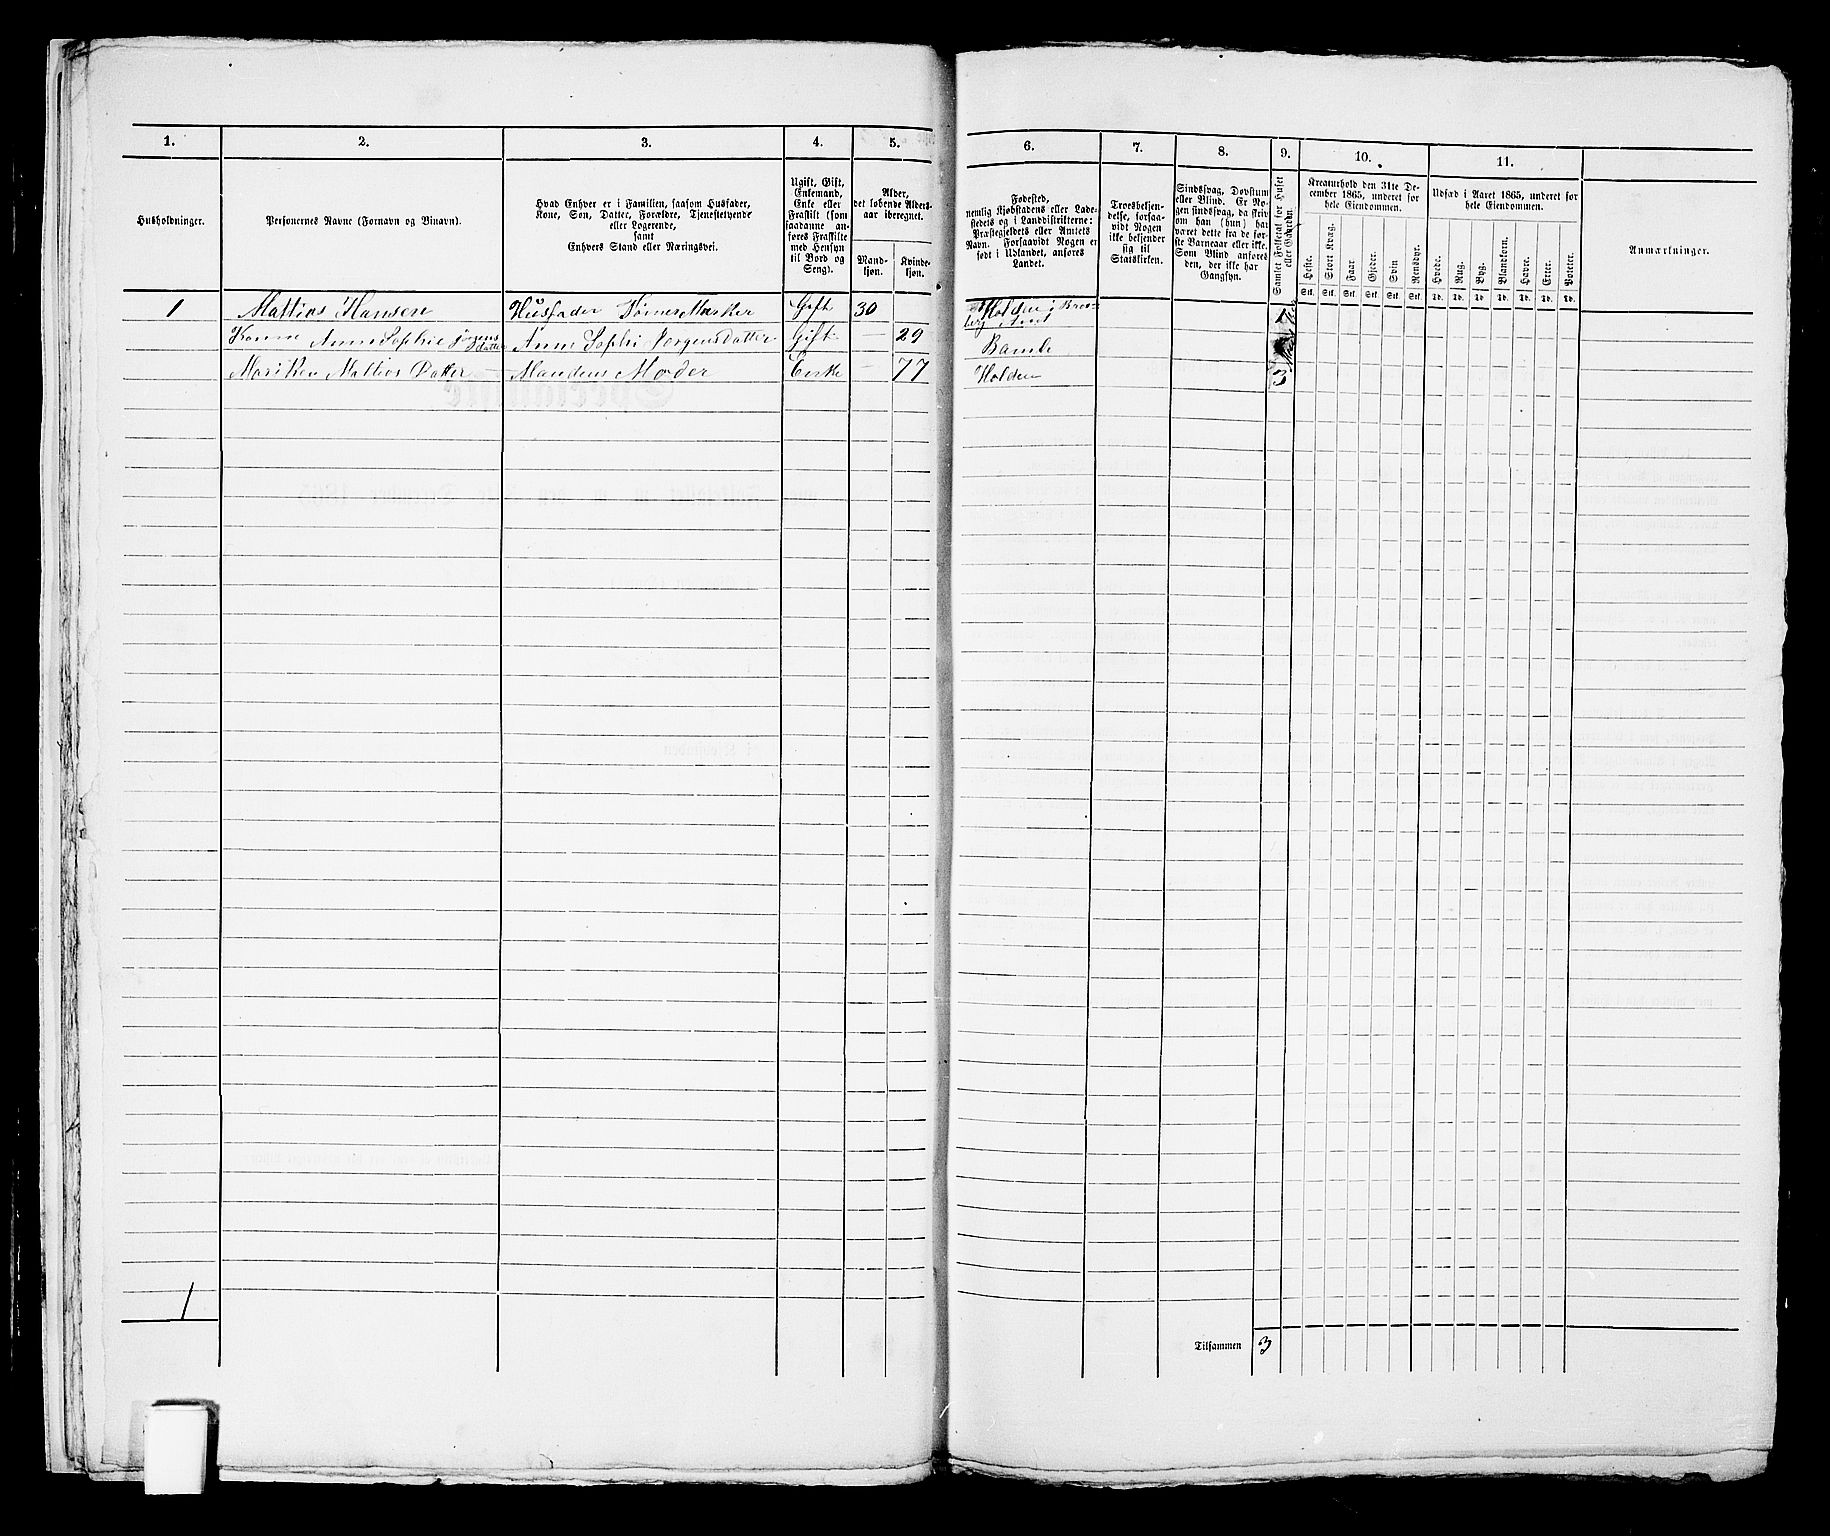 1. 2. 3. 4. 5. 6. 7. 8. 9. 10. 11.
Husholdninger.
Personernes Navne (Fornavn og Vinavn).
Hvad Enhver er i Familien, saasom Husfader,
Kone, Søn, Datter, Forældre, Tjenestetyende
eller Logerende,
samt
Enhvers Stand eller Næringsvei.
Ugift, Gift,
Enkemand,
Enke eller
Fraskilt (som
saadanne an-
føres Fraskilte
med Hensyn
til Bord og
Seng).
Alder,
det løbende Alders-
aar iberegnet.
Mand-
kjøn.
Kvinde-
kjøn.
Fødested,
nemlig Kjøbstadens eller Lade-
stedets og i Landdistrikterne:
Præstegjeldets eller Amtets
Navn. Forsaavidt Nogen er
født i Udlandet, anføres
Landet.
Troesbekjen-
delse, forsaa-
vidt Nogen
ikke bekjender
sig til
Statskirken.
Sindssvag, Døvstum
eller Blind. Er No-
gen sindssvag, da skriv
om han (hun) har
været dette fra de før-
ste Barneaar eller ikke.
Som Blind anføres
den, der ikke har
Gangsyn.
Samlet Folketal for Huset
eller Gaarden.
Kreaturhold den 31te De-
cember 1865, underet for
hele Eiendommen.
Heste.
Stort Kvæg.
Faar
Gjeder.
Svin
Rensdyr.
Stk. Stk. Stk. Stk. Stk. Stk.
Udsæd i Aaret 1865, underet for
hele Eiendommen.
Hvede.
Rug.
Byg.
Blandkorn.
Havre.
Erter.
Poteter.
Td. Td. Td. Td. Td. Td. Td.
Anmærkninger.
1 Mattias Hansen Husfader Gift 30 Holden i Brats-
berg Amt 1
Kone Anne Sophie Jørgens
datter Anne Sophi Jørgensdatter Gift 29 Bamle
Mariken Mattias Datter Mandens Moder Enke 77 Holden 3
1
Tilsammen 3